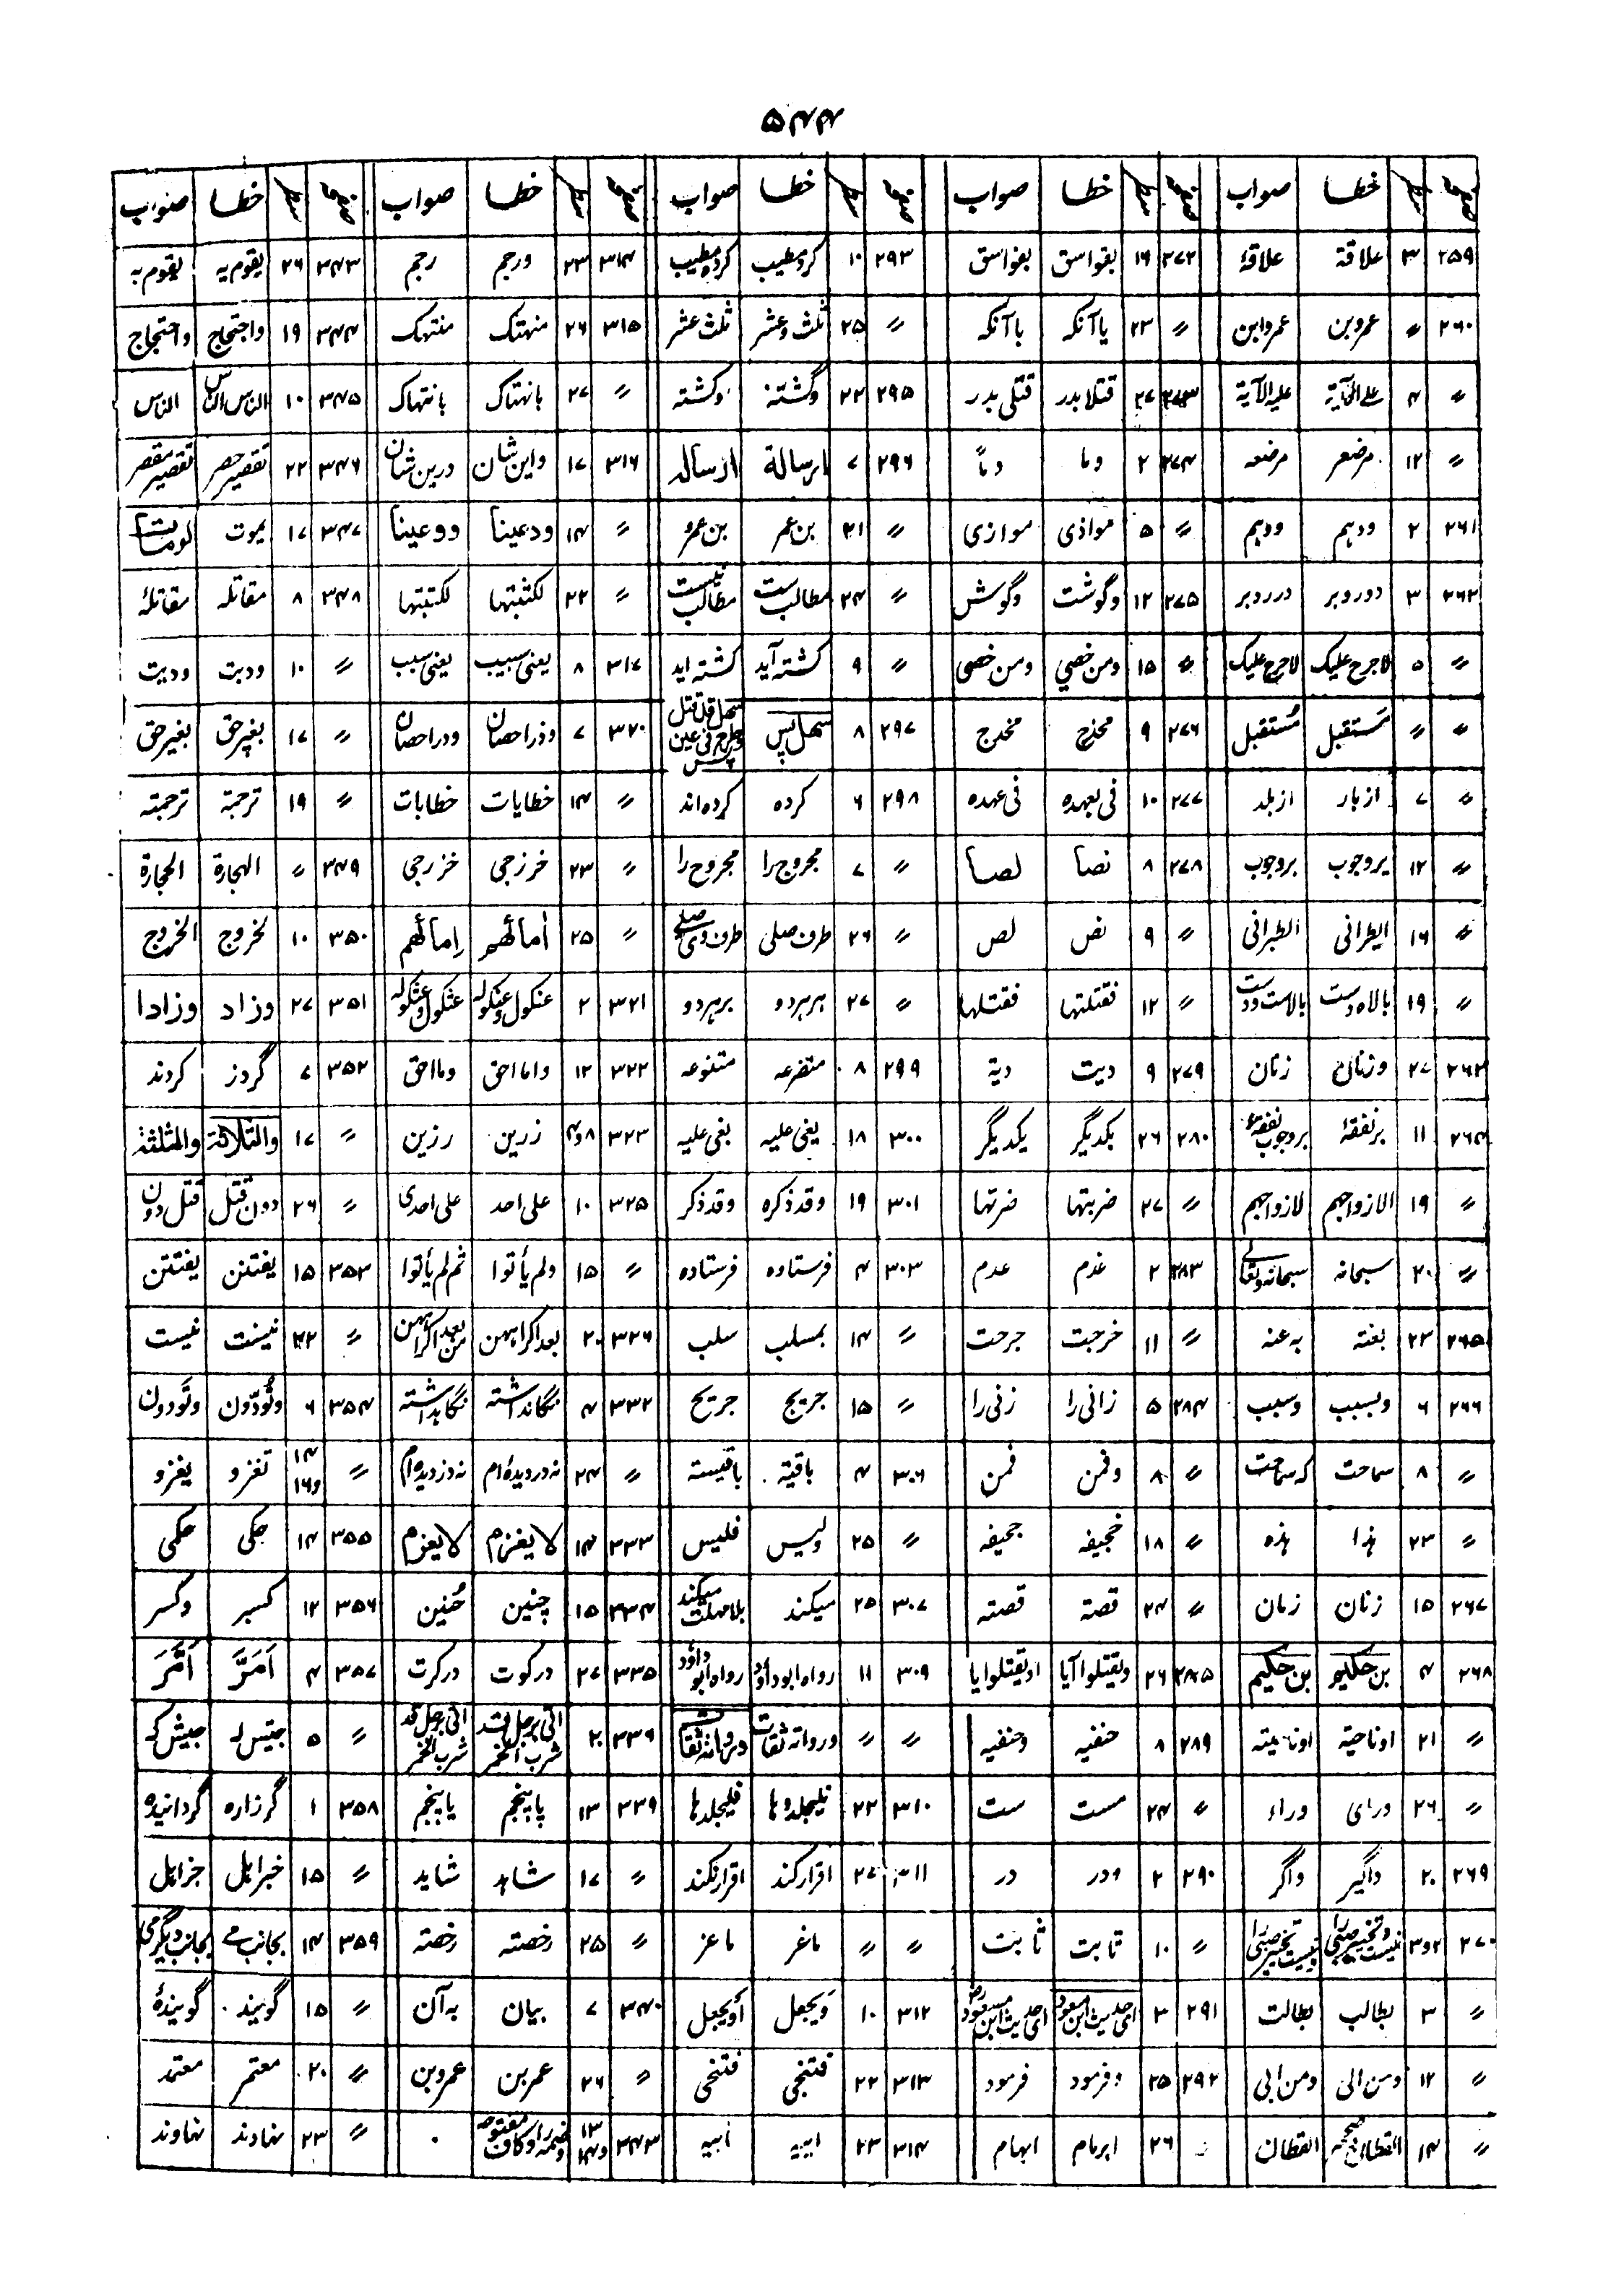 ۵۴۴
صفحه سطر خطا صواب صفحه سطر خطا صواب صفحه سطر خطا صواب صفحه سطر خطا صواب صفحه سطر خطا صواب
۲۵۹ ۳ علاقة علاقۂ ۲۷۲ ۱۶ بقواسق بفواسق ۲۹۳ ۱۰ کردمطیب کرده مطیب ۳۱۴ ۲۳ ورجم رجم ۳۴۳ ۲۶ یقوم یه یقوم به
۲۶۰ 〃 عمروبن عمرو ابن 〃 ۲۳ یا آنکه با آنکه 〃 ۲۵ ثلث وعشر ثلث عشر ۳۱۵ ۲۶ منهتک منتهک ۳۴۴ ۱۹ واجتحاج واحتجاج
〃 ۴ علیه الآیة ۲۷۳ ۲۷ قتلا بدر قتلی بدر ۲۹۵ ۲۲ وگشتہ وکشته 〃 ۲۷ بانهتاک بانتهاک ۳۴۵ ۱۰ الناس الناس الناس
〃 ۱۲ مرضعر مرضعه ۲۷۴ ۲ وما دماً ۲۹۶ ۷ ارسالة ارساله ۳۱۶ ۱۷ واین شان درین شان ۳۴۶ ۲۲ تقصیر حصر تقصیر مقصر
۲۶۱ ۲ ودہم ودہم 〃 ۵ مواذی موازی 〃 ۲۱ بن عمر بن عمرو 〃 ۱۴ ودعینا ووعینا ۳۴۷ ۱۷ یموت لومات
۲۶۲ ۳ دوروبر درردبر ۲۷۵ ۱۲ وگوشت وگوش 〃 ۲۴ مطالب ست مطالب نیست 〃 ۲۲ لکثبتها لکتبتها ۳۴۸ ۸ مقاتله مقاتلۂ
〃 ۵ لاجرح علیک لاحرج علیک 〃 ۱۵ ومن خضی ومن خصی 〃 ۹ کشته آید کشته اید ۳۱۷ ۸ یعنی سبیب یعنی سبب 〃 ۱۰ ودبت ودیت
〃 〃 مَستقبل مُستقبل ۲۷۶ ۹ محذج مخدج ۲۹۷ ۸ سهل پس ۳۲۰ ۷ وذراحصان ودراحصان 〃 ۱۷ بغیرحق بغیرحق
〃 ۷ ازبار ازبلد ۲۷۷ ۱۰ فی بعهده فی عهده ۲۹۸ ۶ کرده کرده اند 〃 ۱۴ خطایات خطابات 〃 ۱۹ ترجمة ترجمته
〃 ۱۲ یروجوب بروجوب ۲۷۸ ۸ نصا لصا 〃 ۷ مجروج را مجروح را 〃 ۲۳ خرزجی خزرجی ۳۴۹ 〃 الهجارة الحجارة
〃 ۱۶ الیطرانی الطبرانی 〃 ۹ نض لص 〃 ۲۶ طرف صلی طرف وی صلی 〃 ۲۵ أمالهم إمالهم ۳۵۰ ۱۰ لخروج الخروج
〃 ۱۹ بالاه دست بالاست ودست 〃 ۱۲ فقتلتها فقتلها 〃 ۲۷ هرہردو برہردو ۳۲۱ ۲ عنکول وعنکوله عثکول وعثکوله ۳۵۱ ۲۷ وزاد وزادا
۲۶۳ ۲۷ وزنان زنان ۲۷۹ ۹ دیت دیة ۲۹۹ ۸ متضرعه متنوعه ۳۲۲ ۱۲ واما احق وما احق ۳۵۲ ۷ گردز کردند
۲۶۴ ۱۱ برنفقة بروجوب نفقۂ ۲۸۰ ۲۶ بکدیگر یکدیگر ۳۰۰ ۱۸ یغی علیه بغی علیه ۳۲۳ ۸و۴ زرین رزین 〃 ۱۷ والثلاثة والمثلثة
〃 ۱۹ الازواجهم لازواجهم 〃 ۲۷ ضربتها ضرتها ۳۰۱ ۱۹ وقدذکره وقدذکر ۳۲۵ ۱۰ علی احد علی احدی 〃 ۲۶ دون قتل قتل دون
〃 ۲۰ سبحانه سبحانه وتعالی ۲۸۳ ۲ غدم عدم ۳۰۳ ۴ فرستاوه فرستاده 〃 ۱۵ ولم یأتوا ثم لم یأتوا ۳۵۳ ۱۵ یفتتن یفتتن
۲۶۵ ۲۳ بعنته به عنه 〃 ۱۱ خرجت جرحت 〃 ۱۴ بمسلب سلب ۳۲۶ ۲۰ بعد اکراههن من بعد اکراههن 〃 ۲۲ نیسنت نیست
۲۶۶ ۶ وبسبب وسبب ۲۸۴ ۵ زانی را زنی را 〃 ۱۵ جریج جریح ۳۳۲ ۴ نگانداشته نگاہداشته ۳۵۴ ۶ وتُودّون وتَودون
〃 ۸ سماحت که سماحت 〃 ۸ وفمن فمن ۳۰۶ ۴ باقیة باقیسته 〃 ۲۴ نه دردیده ام نه دزدیده ام 〃 ۱۴ و۱۶ تغزو یغزو
〃 ۲۳ ہذا ہذه 〃 ۱۸ خجیفه جحیفه 〃 ۲۵ ولیس فلیس ۳۳۳ ۱۴ لا یغزم لا یغرم ۳۵۵ ۱۴ جکی حکمی
۲۶۷ ۱۵ زنان زمان 〃 ۲۴ قصة قصته ۳۰۷ ۲۵ میکند بلامهلت میکند ۳۳۴ ۱۵ چنین حُنین ۳۵۶ ۱۲ کسبر وکسر
۲۶۸ ۴ بن حکلیو بن حکیم ۲۸۵ ۲۶ ویقتلوا آیا اویقتلوا یا ۳۰۹ ۱۱ رواه ابوداؤد رواه ابوداؤد ۳۳۵ ۲۷ درکوت درکرت ۳۵۷ ۴ اَمَرَّ اَمَّرَ
〃 ۲۱ اوناحیة اوناحیته ۲۸۹ ۸ حنفیه وحنفیه 〃 〃 ورواته ثقات ورواته ثقات ۳۳۶ ۲۰ اتی برجل فقد شرب الخمر اتی برجل قد شرب الخمر 〃 ۵ جتیس له جیش که
〃 ۲۶ ورای وراء 〃 ۲۴ مست ست ۳۱۰ ۲۲ فلیجلدوها فلیجلدها ۳۳۹ ۱۳ پاپنجم یاپنجم ۳۵۸ ۱ گرزاره گردانیده
۲۶۹ ۲۰ داگیر واگر ۲۹۰ ۲ ودر در ۳۱۱ ۲۷ اقرارکند اقرارنکند 〃 ۱۷ شاہد شاید 〃 ۱۵ خبرابل جزابل
۲۷۰ ۲و۳ 〃 ۱۰ تابت ثابت 〃 〃 ماغر ماعز 〃 ۲۵ رخصتہ رخصة ۳۵۹ ۱۴ بجانب می بجانب دیگر می
〃 ۳ بطالب بطالت ۲۹۱ ۳ احادیث ابن مسعود ۳۱۲ ۱۰ وَیجعل أویجعل ۳۴۰ ۷ بیان به آن 〃 ۱۵ گویند گویندۂ
〃 ۱۲ ومن الی ومن ابی ۲۹۲ ۲۵ وفرمود فرمود ۳۱۳ ۲۲ فتنجی فتنحی 〃 ۲۶ عمربن عمروبن 〃 ۲۰ معتمر معتمد
〃 ۱۴ القطان القطان ۲۶ ابرہام ابهام ۳۱۴ ۲۳ ابیه انبیه ۳۴۳ ۱۳ و۱۴ 〃 ۲۳ نهادند نهاوند